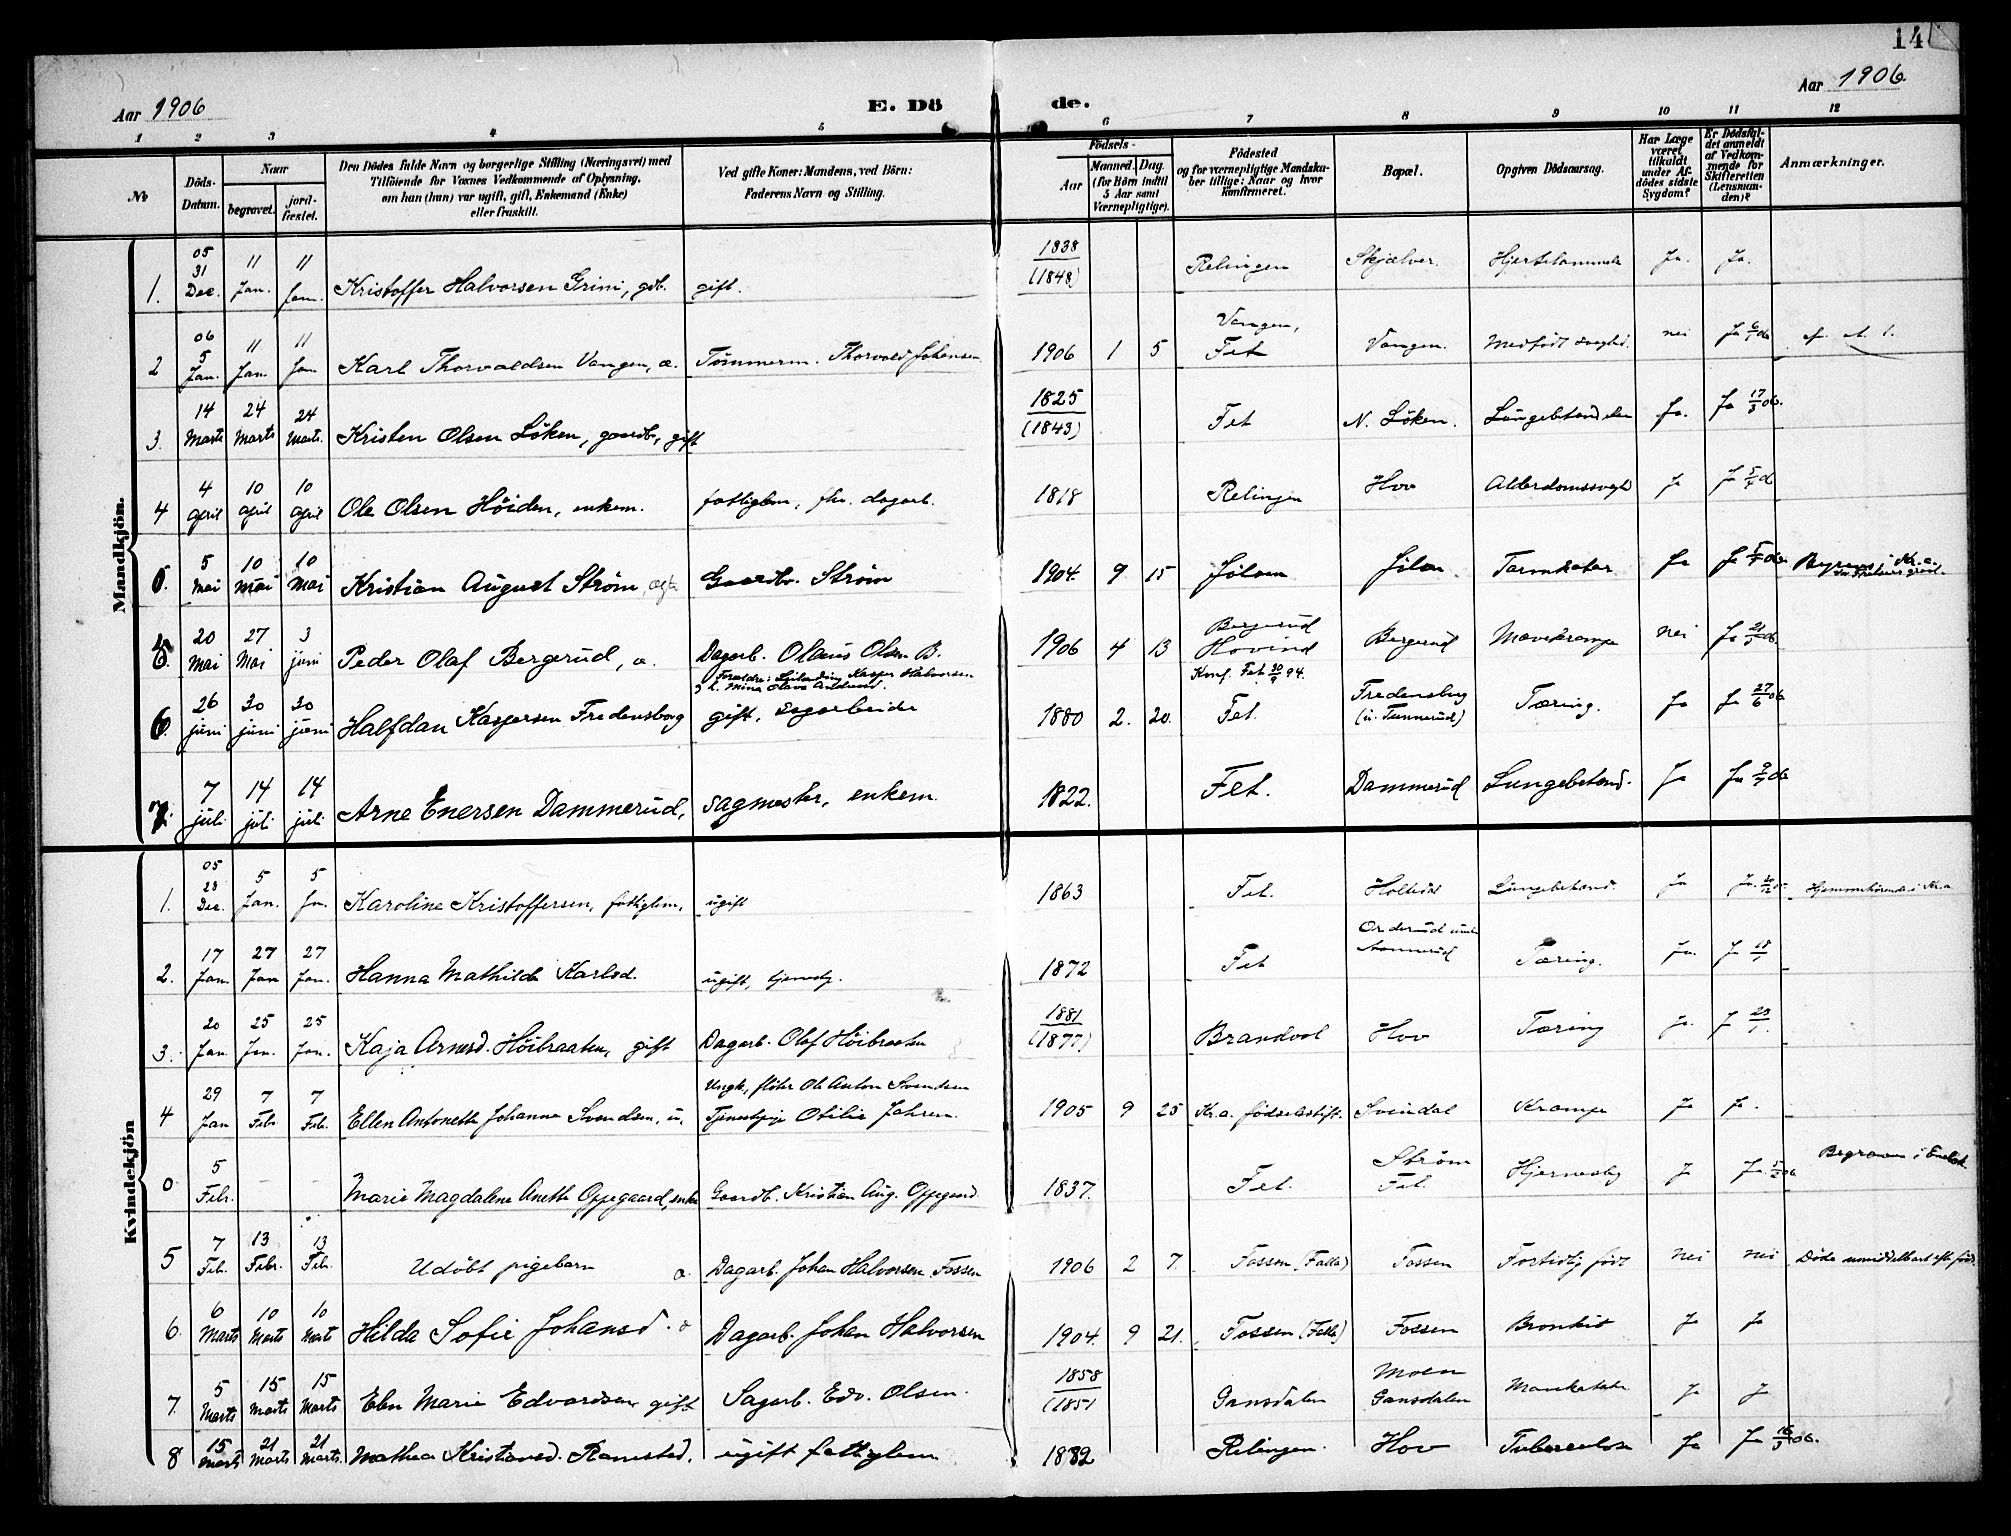 14
Aar 1906
E. Dö de.
Aar 1906
1 2 3 4 5 6 7 8 9 10 11 12
№
Döds-Datum.
Naar
begravet.
jord-fæstet.
Den Dödes fulde Navn og borgerlige Stilling (Næringsvei) med
Tilföiende for Voxnes Vedkommende af Oplysning,
om han (hun) var ugift, gift, Enkemand (Enke)
eller fraskilt.
Ved gifte Koner: Mandens, ved Börn:
Faderens Navn og Stilling.
Födsels-
Aar
Maaned. Dag.
(for Börn indtil
5 Aar samt
Værnepligtige).
Födested
og for værnepligtige Mandska-
ber tillige: Naar og hvor
konfirmeret.
Bopæl.
Opgiven Dödsaarsag.
Har Læge
været
tilkaldt
under Af-
dödes sidste
Sygdom?
Er Dödsfal-
det anmeldt
af Vedkom-
mende for
Skifteretten
(Lensman-
den)?
Anmærkninger.
Mandkjön.
1. 05 31 Dec. 11 Jan. 11 Jan. Kristoffer Halvorsen Grini, gdb. gift. 1838 (1848) Relingen Skjælver. Hjertelammelse Ja. Ja.
2 06 5 Jan. 11 Jan. 11 Jan Karl Thorvaldsen Vangen, æ. Tömmerm. Thorvald Johansen 1906 1 5 Vangen, Fet Vangen. Medfödt svaghed. nei Ja 6/1 06
3. 14 Marts 24 Marts 24 Marts. Kristen Olsen Löken, gaardb., gift 1825 (1843) Fet N. Löken. Lungebetændelse Ja. Ja 17/3 06.
4 4 April 10 April 10 April Ole Olsen Höiden, enkem. fattiglem, fhv. dagarb. 1818 Relingen Hov Alderdomssvagh. Ja Ja 5/4
5. 5 Mai 10 Mai 10 Mai Kristian August Ström, ægte Gaardbr. Ström 1904. 9 15 Jölsen Jölsen. Tarmkatar. Ja Ja 06
5. 20 Mai 27 Mai 3 juni Peder Olaf Bergerud, æ. Dagarb. Olaus Olsen B. 1906 4 13 Bergerud Hovind Bergerud Mavekrampe nei Ja 21/5 06
6. 26 juni 30 juni 30 juni Halfdan Kaspersen Fredensborg gift, dagarbeider Kasper Halvorsen 1880 2. 20. Konf. Fet 30/9 94. Fet. Fredensborg (u. Tunnerud) Tæring. Ja Ja 27/6 06
7. 7 juli 14 juli 14 juli Arne Enersen Dammerud, sagmester, enkem. 1822. Fet. Dammerud Lungebetænd. Ja Ja 9/7 06
Kvindekjön
1. 05 28 Dec. 5 Jan. 5 Jan. Karoline Kristoffersen, fattiglem, ugift 1863 Fet. Lungebetænd. Ja Ja. Hjemmehörende i Kr.a
2. 17 Jan. 27 Jan 27 Jan. Hanna Mathilde Karlsd. ugift, tjenestp. 1872 Fet Orderud under Tæring. Ja. Ja 18/1
3. 20 Jan 25 Jan. 25 Jan. Kaja Arnesd. Höibraaten, gift Dagarb. Olaf Höibraaten 1881 (1877) Brandvol Hov Tæring Ja. Ja 23/1.
4 29 Jan 7 Febr. 7 Feb. Ellen Antonette Johanne Svendsen, u. Ungk., flöter Ole Anton Svendsen Tjenestpige Otilie Jahren. 1905 9 25 Kr.a. födselsstift. Svindal Krampe Ja Ja.
0 5 Febr. - - Marie Magdalene Anette Oppegaard, enke Gaardb. Kristian Aug. Oppegaard. 1837. Fet. Ström Fet. Ja Ja 5/2 06 Begraven i Enebak
5 7 Feb. 13 Febr. 13 Feb. Udöbt pigebarn æ. Dagarb. Johan Halvorsen Fossen 1906 2 7. Fossen (Falla) Fossen Fortidlig födt nei nei Döde umiddelbart efter föds.
6. 6 Marts 10 Marts 10 Marts Hilda Sofie Johansd. æ Dagarb. Johan Halvorsen 1904. 9 21. Fossen (Falla) Fossen Bronkit Ja Ja
7. 5 Marts 15 Marts 15 Marts Elen Marie Edvardsen gift Sagarb. Edv. Olsen. 1858 (1851 Gansdalen Moen Gansdalen Mavekatar Ja Ja
8 15 Marts 21 Marts 21 Marts. Mathea Kristiansd. Ramstad, ugift fattiglem 1882 Relingen. Hov Tuberculose Ja Ja 16/3 06.